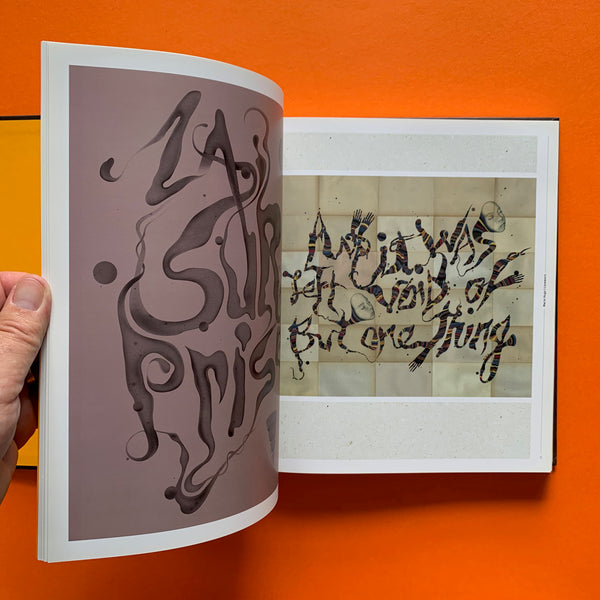 LA
Sur
Pris
And it was
left void of
But one thing.